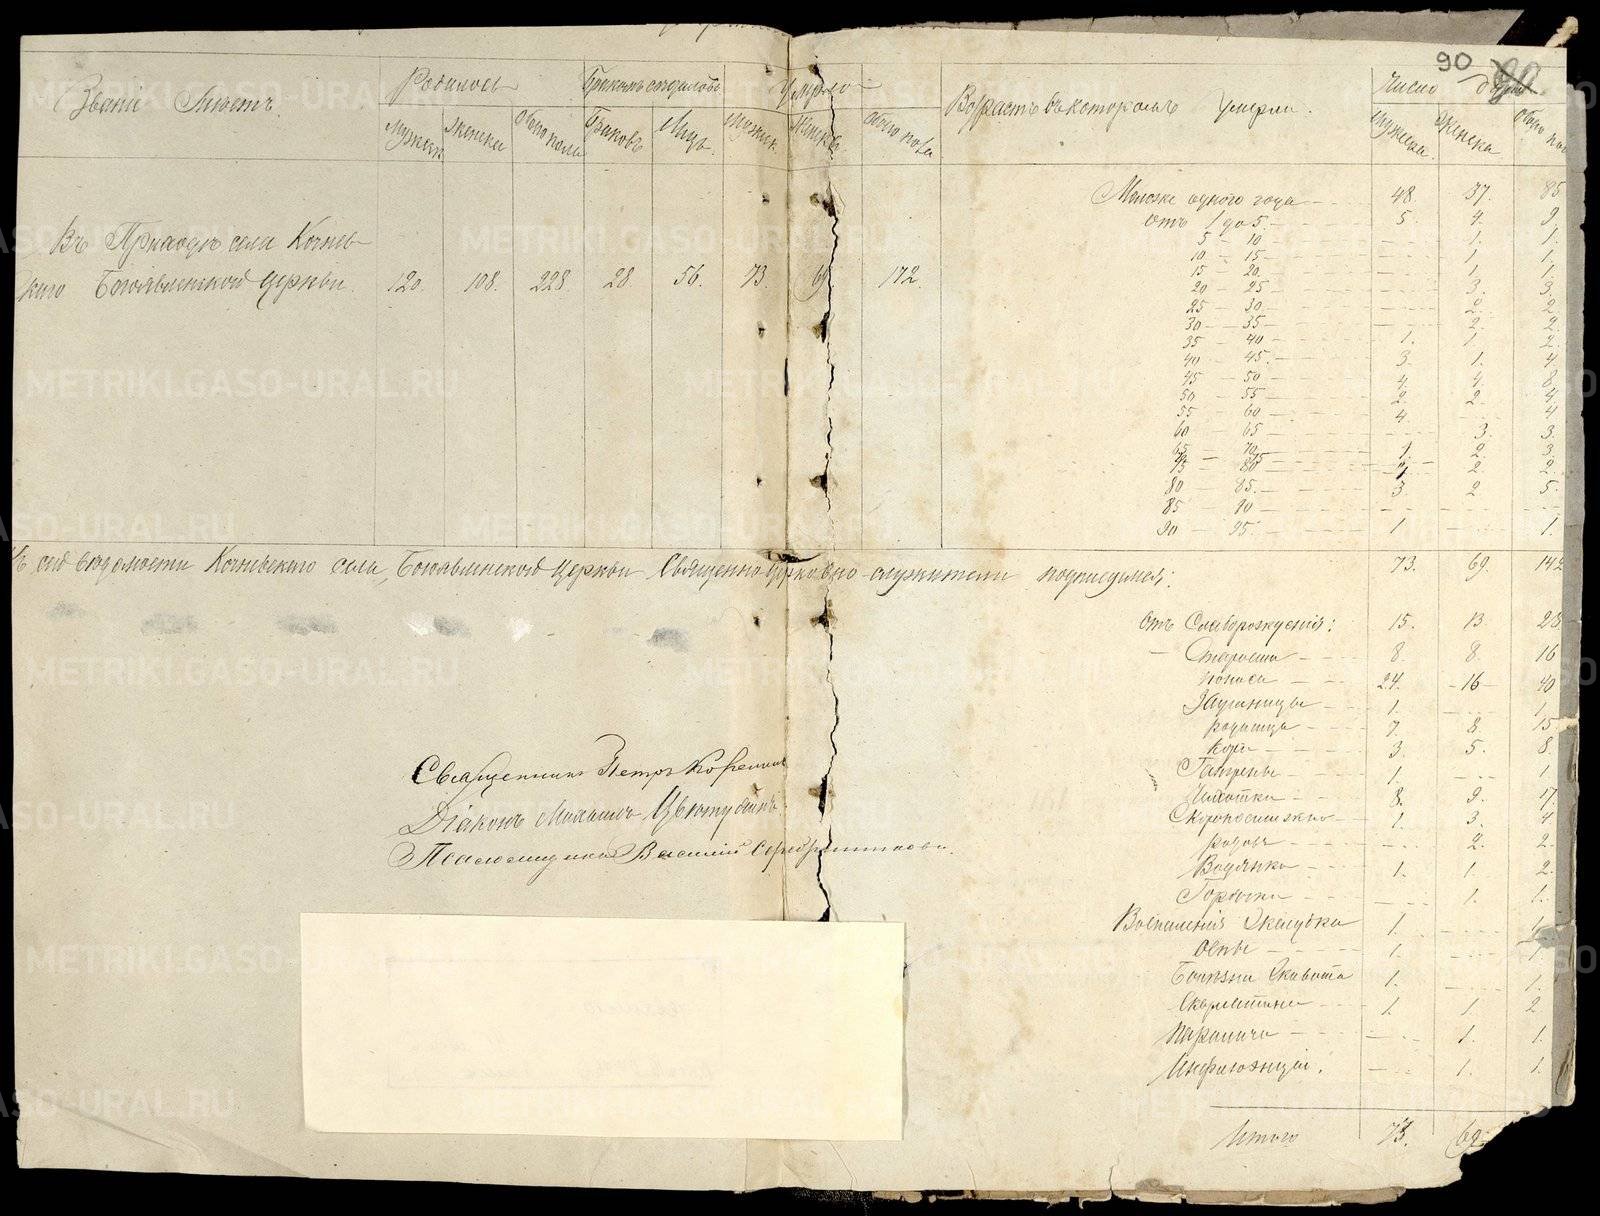 90
Званіе Мѣстъ.
Родилось
Мужск.
Женска
Обоего пола
Бракомъ сочетались
Браковъ
Лицъ.
Умерло
Мужск.
Женска
Обоего пола
Возрастъ въ которомъ умерли.
Число душъ
Мужска.
Женска
Обоего пола
Въ Приходѣ села Кочнев-
скаго Богоявленской церкви. 120. 108. 228 28. 56. 73. 69 142.
Моложе одного года 48. 37. 85
отъ 1 до 5. 5. 4. 9.
5 - 10 1. 1.
10 - 15 1 1.
15 - 20. 1. 1.
20 - 25 3. 3.
25 - 30 2. 2.
30 - 35 2. 2.
35 - 40 1. 1 2.
40 - 45. 3. 1. 4
45 - 50 4. 4. 8.
50 - 55 2. 2. 4
55 - 60 4. 4
60 - 65 3. 3.
65 - 70 1. 2. 3.
75 - 80 2. 2.
80 - 85. 3 2 5.
85 - 90
90 - 95. 1. 1.
73. 69. 142
Къ сей вѣдомости Кочневскаго села, Богоявленской церкви Священно-церковно-служители подписуемся:
отъ Слаборожденія: 15. 13 28
Старости 8. 8. 16
Поноса 24. 16 40
1. 1.
родимца 7. 8. 15
Кори 3. 5. 8.
Гангрены 1. 1
Чахотки 8. 9. 17.
Скоропостижно 1. 3. 4
родовъ 2. 2.
Водянки 1. 1. 2.
Горячки 1. 1.
Воспаленія Желудка 1.
Оспы 1. 1.
Болѣзни Живота 1. 1.
Скарлатины 1. 1 2
Паралича 1. 1.
Инфлюэнціи. 1. 1.
Итого 73. 69
Священникъ Петръ
Діаконъ
Псаломщикъ Василій Серебренниковъ.
METRIKI.GASO-URAL.RU